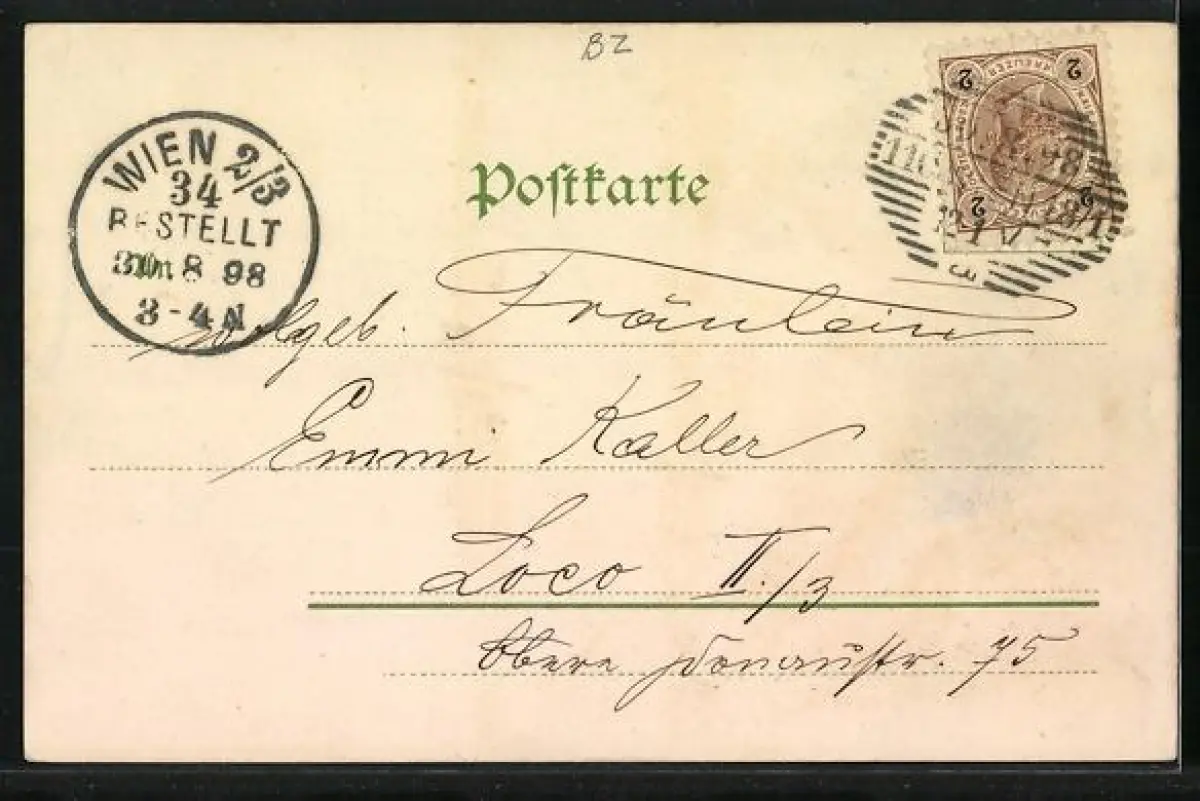 BZ
WIEN 2/3
34
BESTELLT
8 98
3-4 N
Postkarte
2 2
KREUZER
2 2
Wohlgeb. Fräulein
Emmi Kaller
Loco II./3
Obere Donaustr. 75